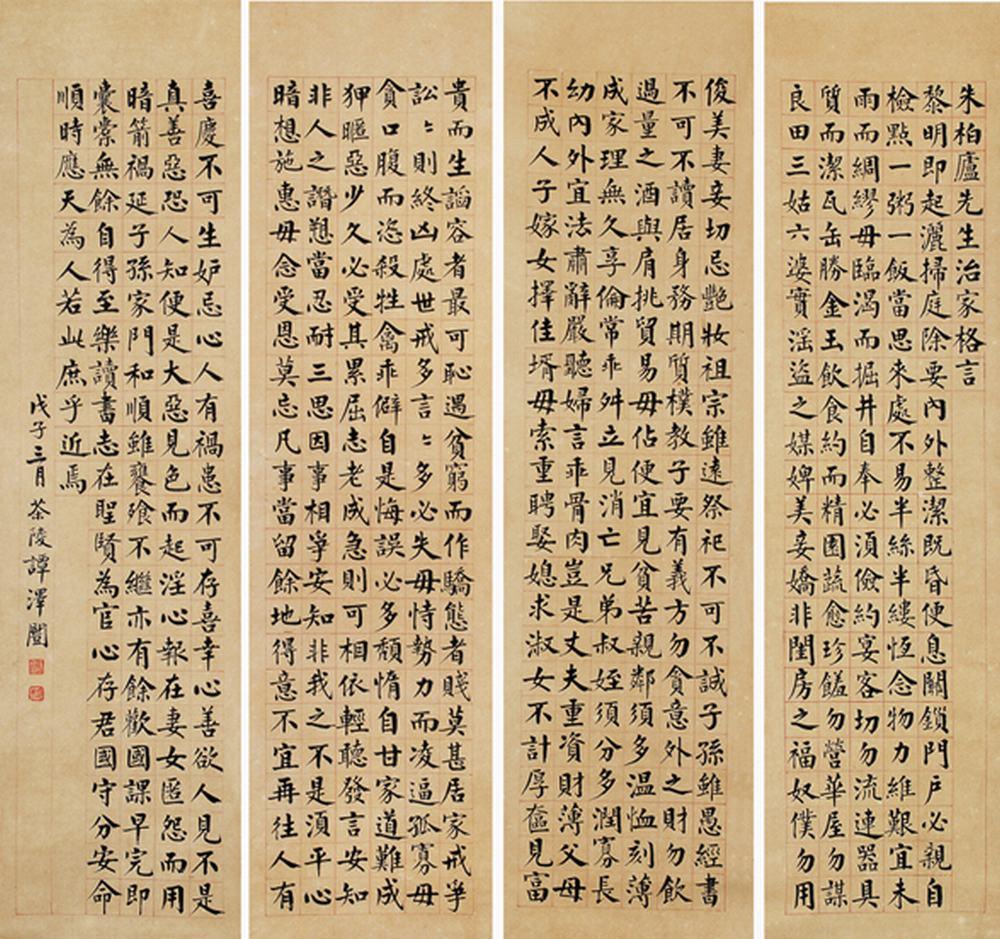 朱柏廬先生治家格言
黎明即起灑掃庭除要內外整潔既昏便息關鎖門戶必親自
檢點一粥一飯當思來處不易半絲半縷恆念物力維艱宜未
雨而綢繆毋臨渴而掘井自奉必須儉約宴客切勿流連器具
質而潔瓦缶勝金玉飲食約而精園蔬愈珍饈勿營華屋勿謀
良田三姑六婆實淫盜之媒婢美妾嬌非閨房之福奴僕勿用
俊美妻妾切忌艷妝祖宗雖遠祭祀不可不誠子孫雖愚經書
不可不讀居身務期質樸教子要有義方勿貪意外之財勿飲
過量之酒與肩挑貿易毋佔便宜見貧苦親鄰須多溫恤刻薄
成家理無久享倫常乖舛立見消亡兄弟叔姪須分多潤寡長
幼內外宜法肅辭嚴聽婦言乖骨肉豈是丈夫重資財薄父母
不成人子嫁女擇佳壻毋索重聘娶媳求淑女不計厚奩見富
貴而生諂容者最可恥遇貧窮而作驕態者賤莫甚居家戒爭
訟〻則終凶處世戒多言〻多必失毋恃勢力而凌逼孤寡毋
貪口腹而恣殺牲禽乖僻自是悔誤必多頹惰自甘家道難成
狎暱惡少久必受其累屈志老成急則可相依輕聽發言安知
非人之譖愬當忍耐三思因事相爭安知非我之不是須平心
暗想施惠毋念受恩莫忘凡事當留餘地得意不宜再往人有
喜慶不可生妒忌心人有禍患不可存喜幸心善欲人見不是
真善惡恐人知便是大惡見色而起淫心報在妻女匿怨而用
暗箭禍延子孫家門和順雖饔飧不繼亦有餘歡國課早完即
囊橐無餘自得至樂讀書志在聖賢為官心存君國守分安命
順時應天為人若此庶乎近焉
戊子三月茶陵譚澤闓